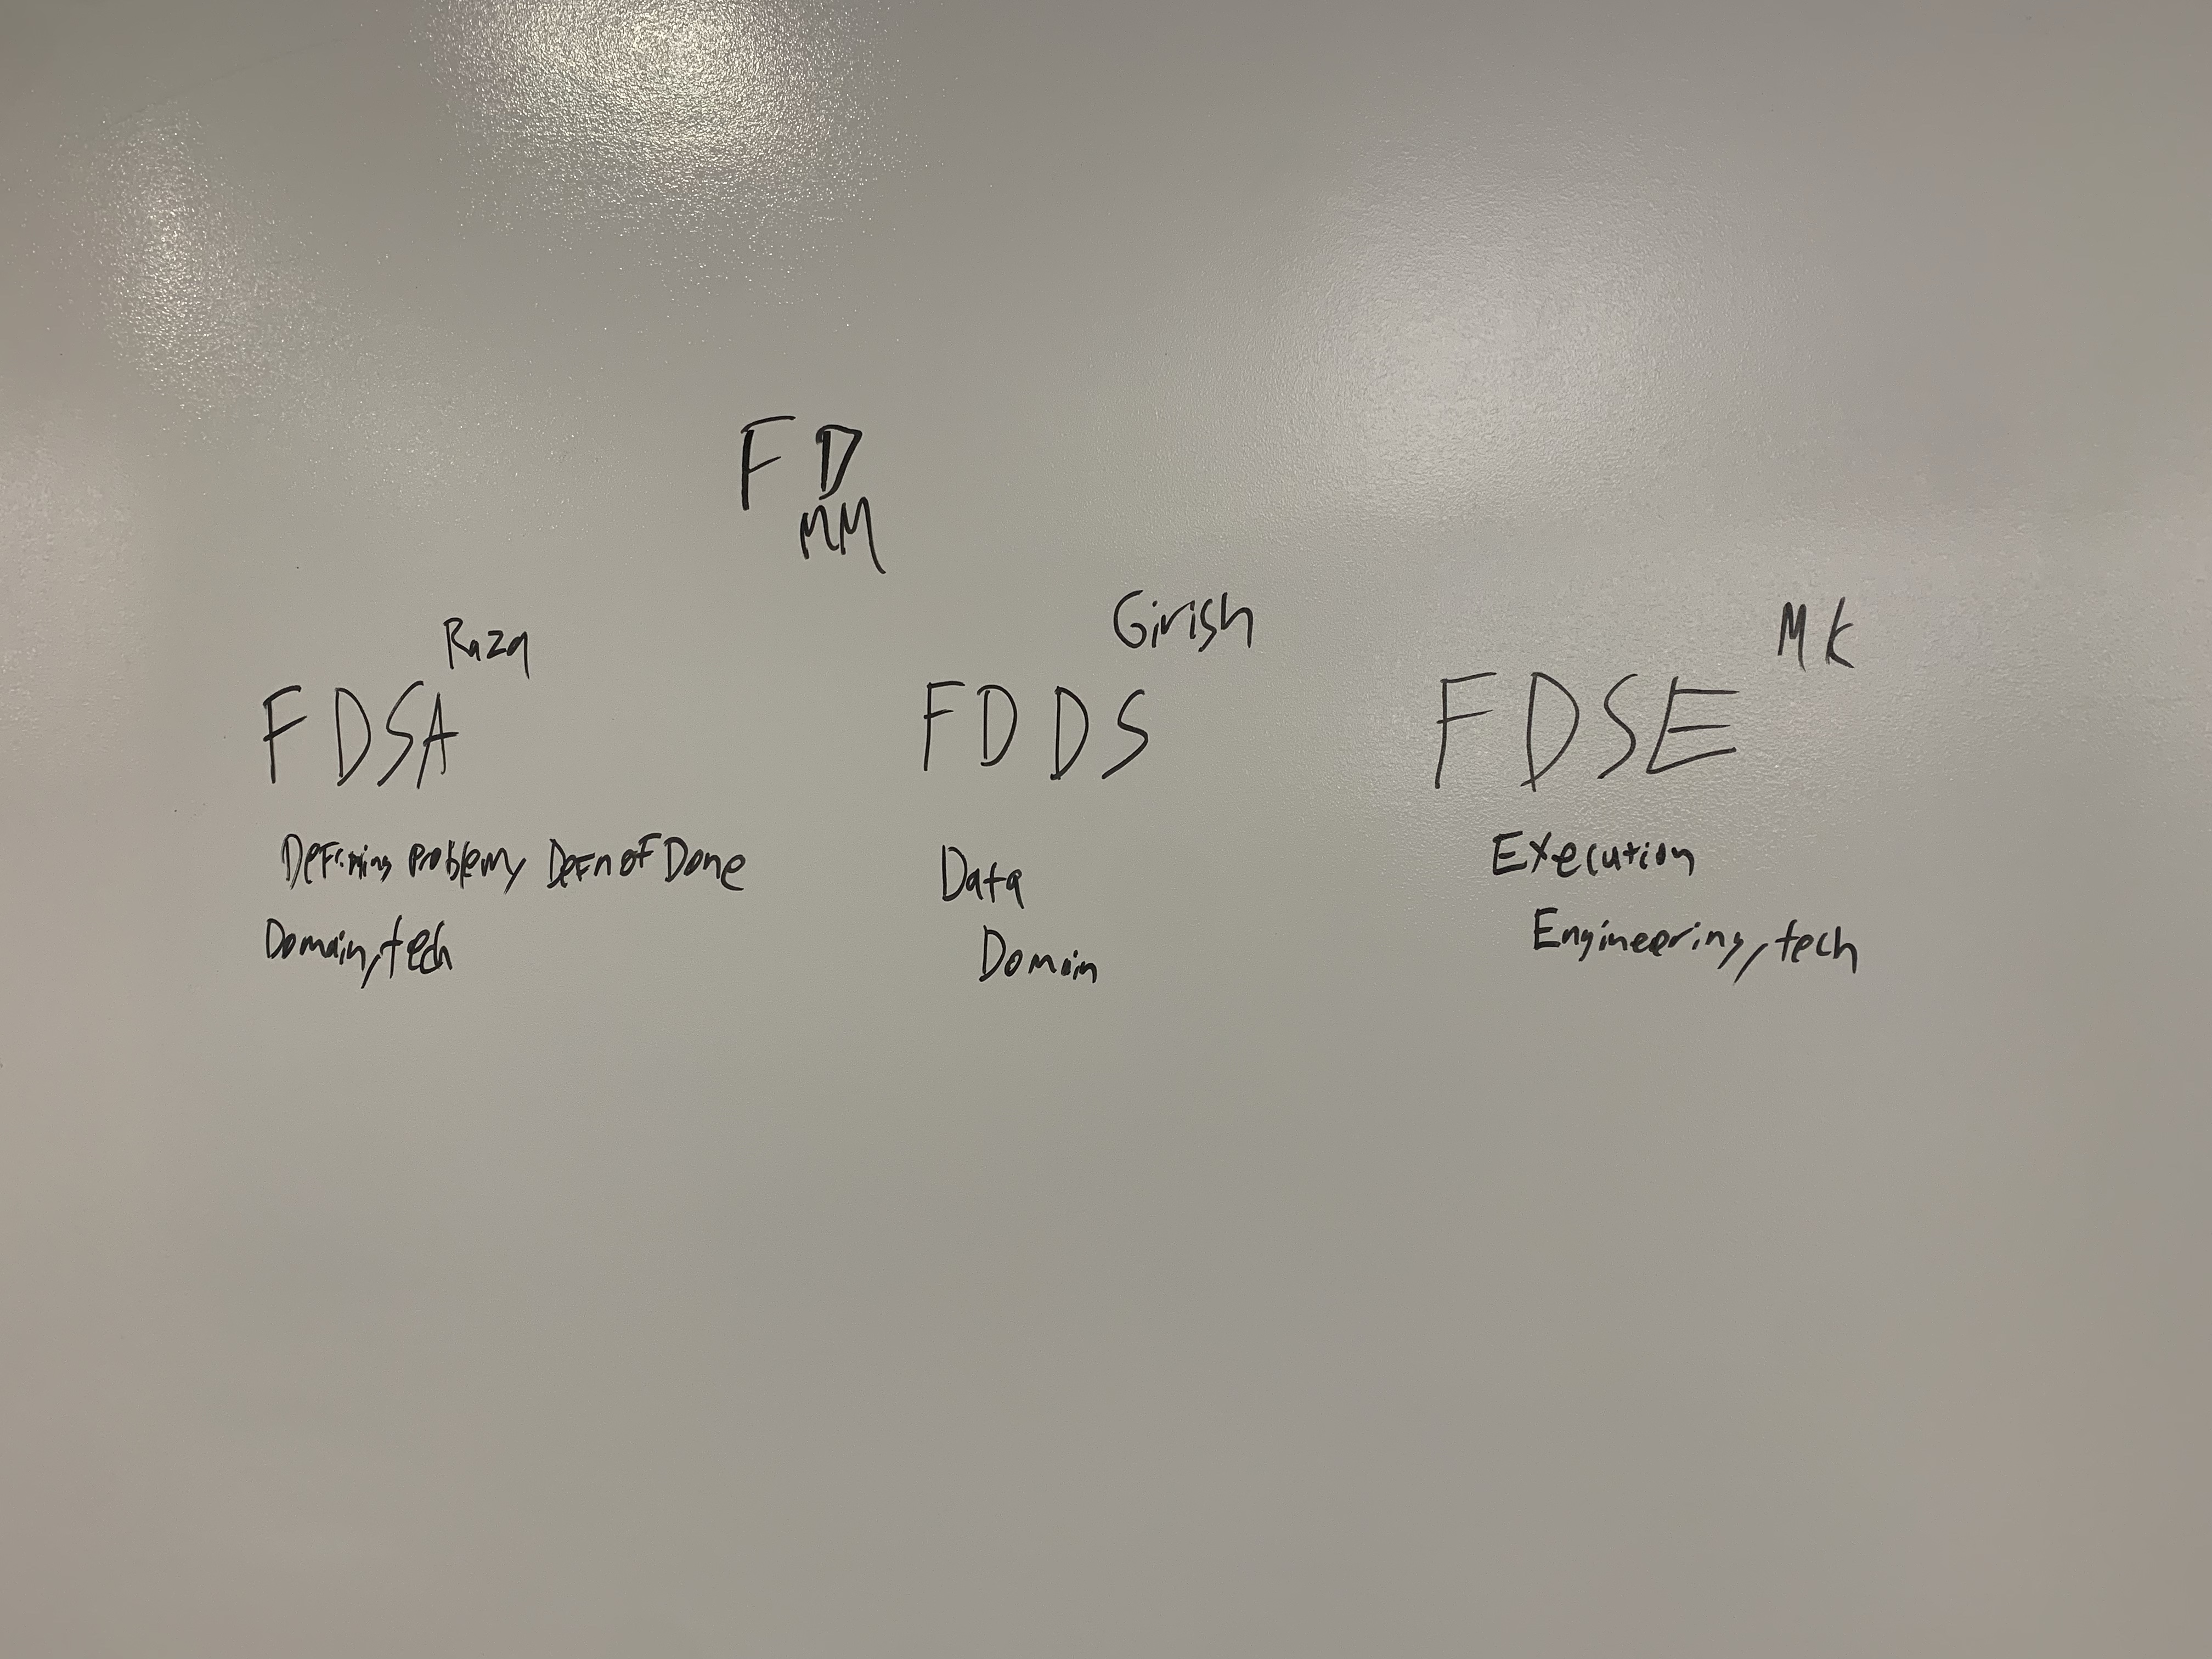 FD
MM
Raza
FDSA
Defining problem, Defn of Done
Domain, tech
Girish
FDDS
Data
Domain
MK
FDSE
Execution
Engineering, tech